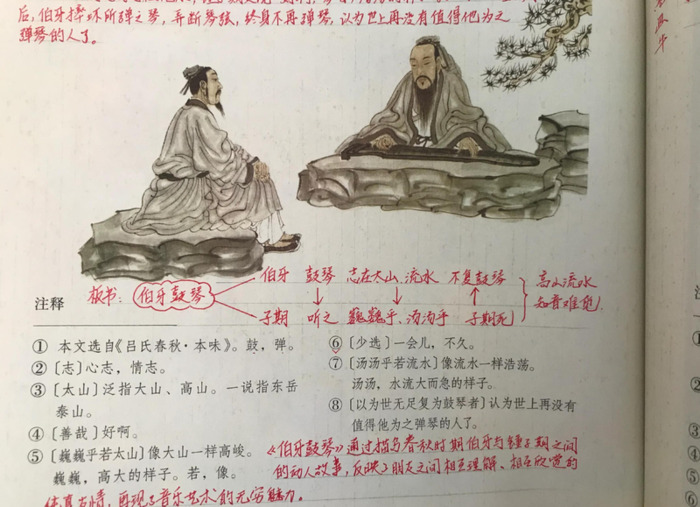 后，伯牙摔坏所弹之琴，弄断琴弦，终身不再弹琴，认为世上再没有值得他为之
弹琴的人了。
板书：伯牙鼓琴
伯牙 鼓琴 志在太山 流水 不复鼓琴
子期 听之 巍巍乎、汤汤乎 子期死
高山流水
知音难觅
注释
① 本文选自《吕氏春秋·本味》。鼓，弹。
②〔志〕心志，情志。
③〔太山〕泛指大山、高山。一说指东岳
泰山。
④〔善哉〕好啊。
⑤〔巍巍乎若太山〕像大山一样高峻。
巍巍，高大的样子。若，像。
⑥〔少选〕一会儿，不久。
⑦〔汤汤乎若流水〕像流水一样浩荡。
汤汤，水流大而急的样子。
⑧〔以为世无足复为鼓琴者〕认为世上再没有
值得他为之弹琴的人了。
《伯牙鼓琴》通过描写春秋时期伯牙与锺子期之间
的动人故事，反映了朋友之间相互理解、相互欣赏的
纯真友情，再现了音乐艺术的无穷魅力。